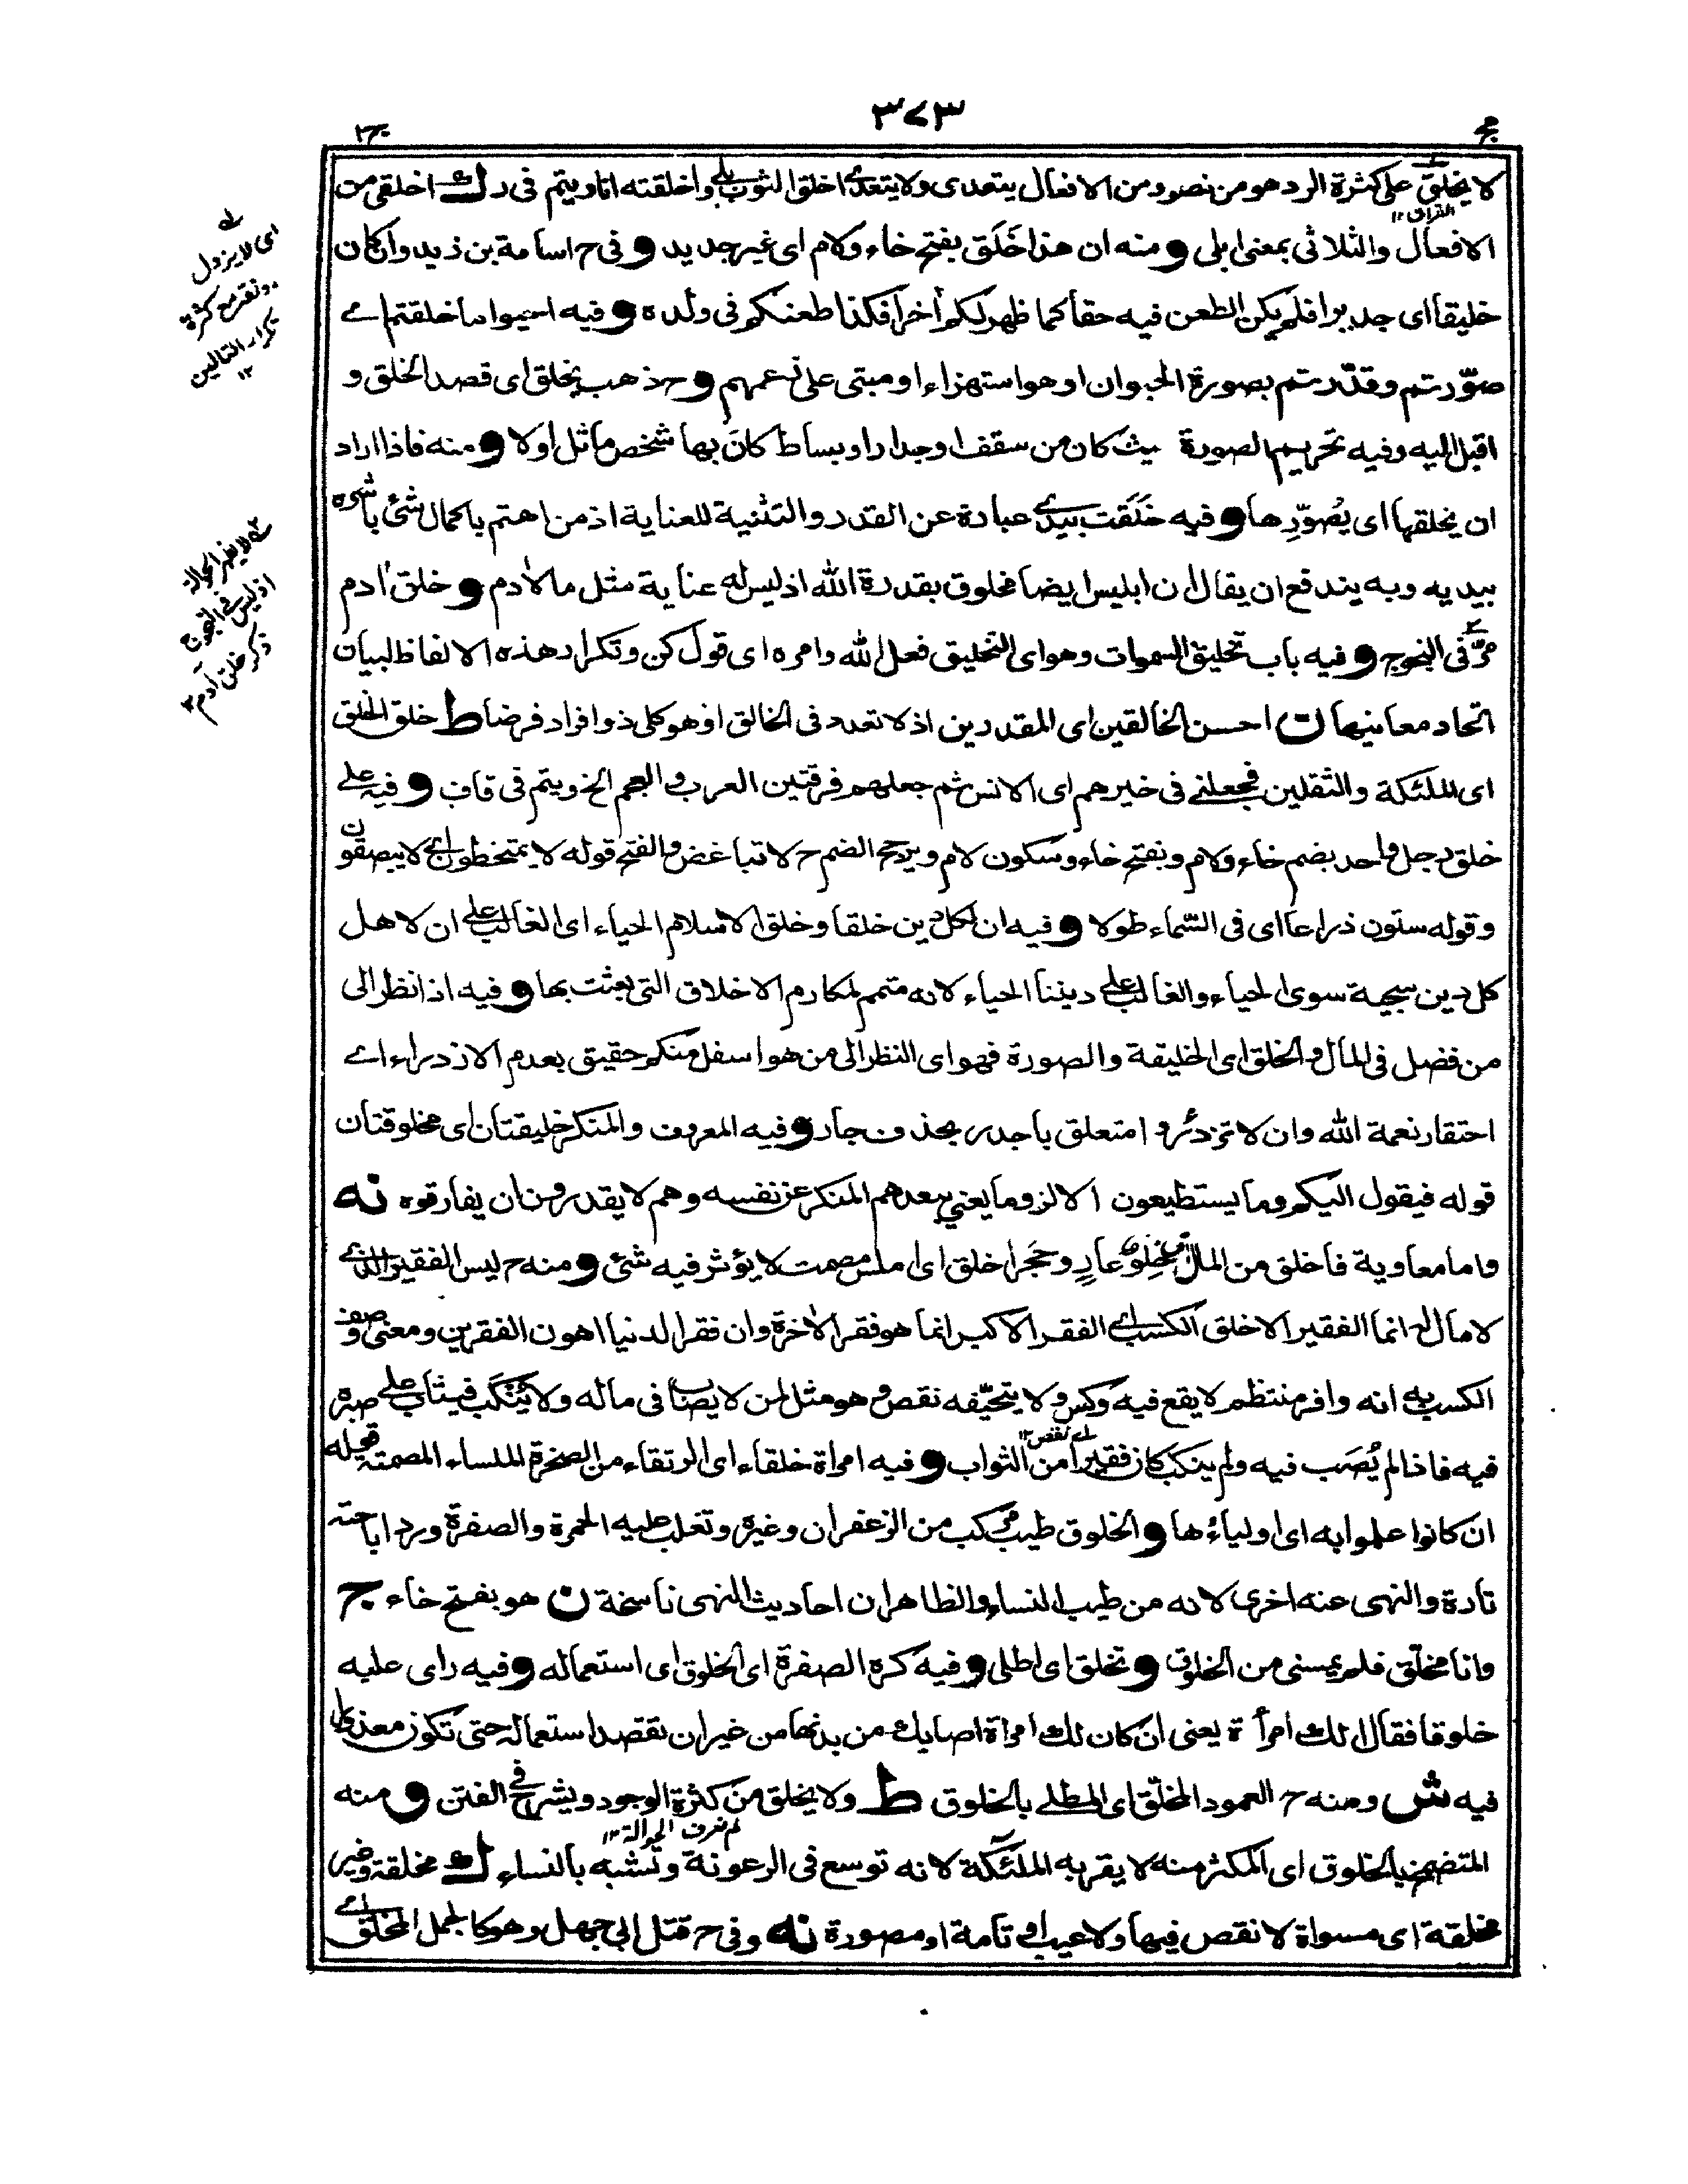 ٣٧٣
لا يخلق على كثرة الرد هو من نصر ومن الافعال يتعدى ولا يتعدى اخلق الثوب بلى واخلقته انا ويتم فى رد ك اخلقى من
الافعال والثلاثى بمعنى ابلى و منه ان هذا خَلَق بفتح خاء ولام اى غير جديد و فى ح اسامة بن زيد وان كان
خليقا اى جديرا فلم يكن الطعن فيه حقا كما ظهر لكم أخرا فكذا طعنكم فى ولده و فيه احيوا ما خلقتم اے
صوّرتم وقدّرتم بصورة الحيوان او هو استهزاء او مبتى على زعمهم و ح ذهب يخلق اى قصد الخلق و
اقبل اليه وفيه تحريم الصورة حيث كان من سقف او جدار او بساط كان بها شخص ماثل اولا و منه فاذا اراد
ان يخلقها اى يُصوّرِها و فيه خَلَقت بيدى عبادة عن القدر والتثنية للعناية اذ من اهتم باكمال شئ باشره
بيديه وبه يندفع ان يقال ان ابليس ايضا مخلوق بقدرة الله اذ ليس له عناية مثل ما لأدم و خلق أدم
مرّ فى النجوج و فيه باب تخليق السموات وهو اى التخليق فعل الله وامره اى قول كن وتكرار هذه الالفاظ لبيان
اتحاد معانيها ت احسن الخالقين اى المقدرين اذ لا تعدد فى الخالق او هو كلى ذو افراد فرضا ط خلق الخلق
اى الملئكة والثقلين فجعلنى فى خيرهم اى الانس ثم جعلهم فرقتين العرب و العجم الخ ويتم فى قاف و فيه على
خلق رجل واحد بضم خاء ولام وبفتح خاء وسكون لام ويرجح الضم ح لا تباغض والفتح قوله لا يمتخطون اى لا يبصقون
وقوله ستون ذراعا اى فى السّماء طولا و فيه ان لكل دين خلقا وخلق الاسلام الحياء اى الغالب على ان لاهل
كل دين سجية سوى الحياء والغالب على ديننا الحياء لانه متمم لمكارم الاخلاق التى بعثت بها و فيه اذا نظر الى
من فضل فى المال و الخلق اى الخليقة والصورة فهو اى النظر الى من هو اسفل منكم حقيق بعدم الازدراء اے
احتقار نعمة الله وان لا تزدئروا متعلق باجدر بحذف جار و فيه المعروف والمنكر خليقتان اى مخلوقتان
قوله فيقول اليكم وما يستطيعون الا لزوما يعنى يبعدهم المنكر عن نفسه وهم لا يقدرون ان يفارقوه نه
واما معاوية فاخلق من المال اى خِلوٌ عارٍ وحَجَر اخلق اى املس مصمت لا يؤثر فيه شئ و منه ح ليس الفقير الذى
لا مال له انما الفقير الاخلق الكسب اے الفقر الاكبر انما هو فقر الأخرة وان فقر الدنيا اهون الفقرين ومعنى وصف
الكسب به انه وافر منتظم لا يقع فيه وكس ولا يتحيّفه نقص و هو مثل لمن لا يصاب فى ماله ولا يُنْكَب فيثاب على صبره
فيه فاذا لم يُصَب فيه ولم ينكب كان فقيرا من الثواب و فيه امراة خلقاء اى الرتقاء من الصخرة الملساء المصمتة قوله
ان كانوا علموا به اى اولياءُها و الخلوق طيب مركب من الزعفران وغيره وتغلب عليه الحمرة والصفرة ورد اباحته
تارة والنهى عنه اخرى لانه من طيب النساء والظاهر ان احاديث النهى ناسخة ن هو بفتح خاء ج
وانا مخلّق فلم يمسنى من الخلوق و تخلق اى اطلى و فيه كره الصفرة اى الخلوق اى استعماله و فيه راى عليه
خلوقا فقال الك امرأة يعنى ان كان لك امراة اصابك من بدنها من غير ان تقصد استعماله حتى تكون معذورا
فيه ش ومنه ح العمود المخلّق اى المطلے بالخلوق ط ولا يخلق من كثرة الوجود ويشرح فى الفتن و منه
المتضمخ بالخلوق اى المكثر منه لا يقربه الملئكة لانه توسع فى الرعونة وتشبه بالنساء ك مخلقة وغير
مخلقة اى مسواة لا نقص فيها ولا عيب او تامة او مصورة نه وفى ح قتل ابى جهل وهو كالجمل المخلق اے
القراٰن ١٢
اے نقص ١٢
لم نعرف الحوالة ١٢
اى لا يزول
رونقه مع كثرة
تكرار التالين
١٢
لا يظهر الحوالة
اذ ليس فى النجوج
ذكر خلق آدم ١٢